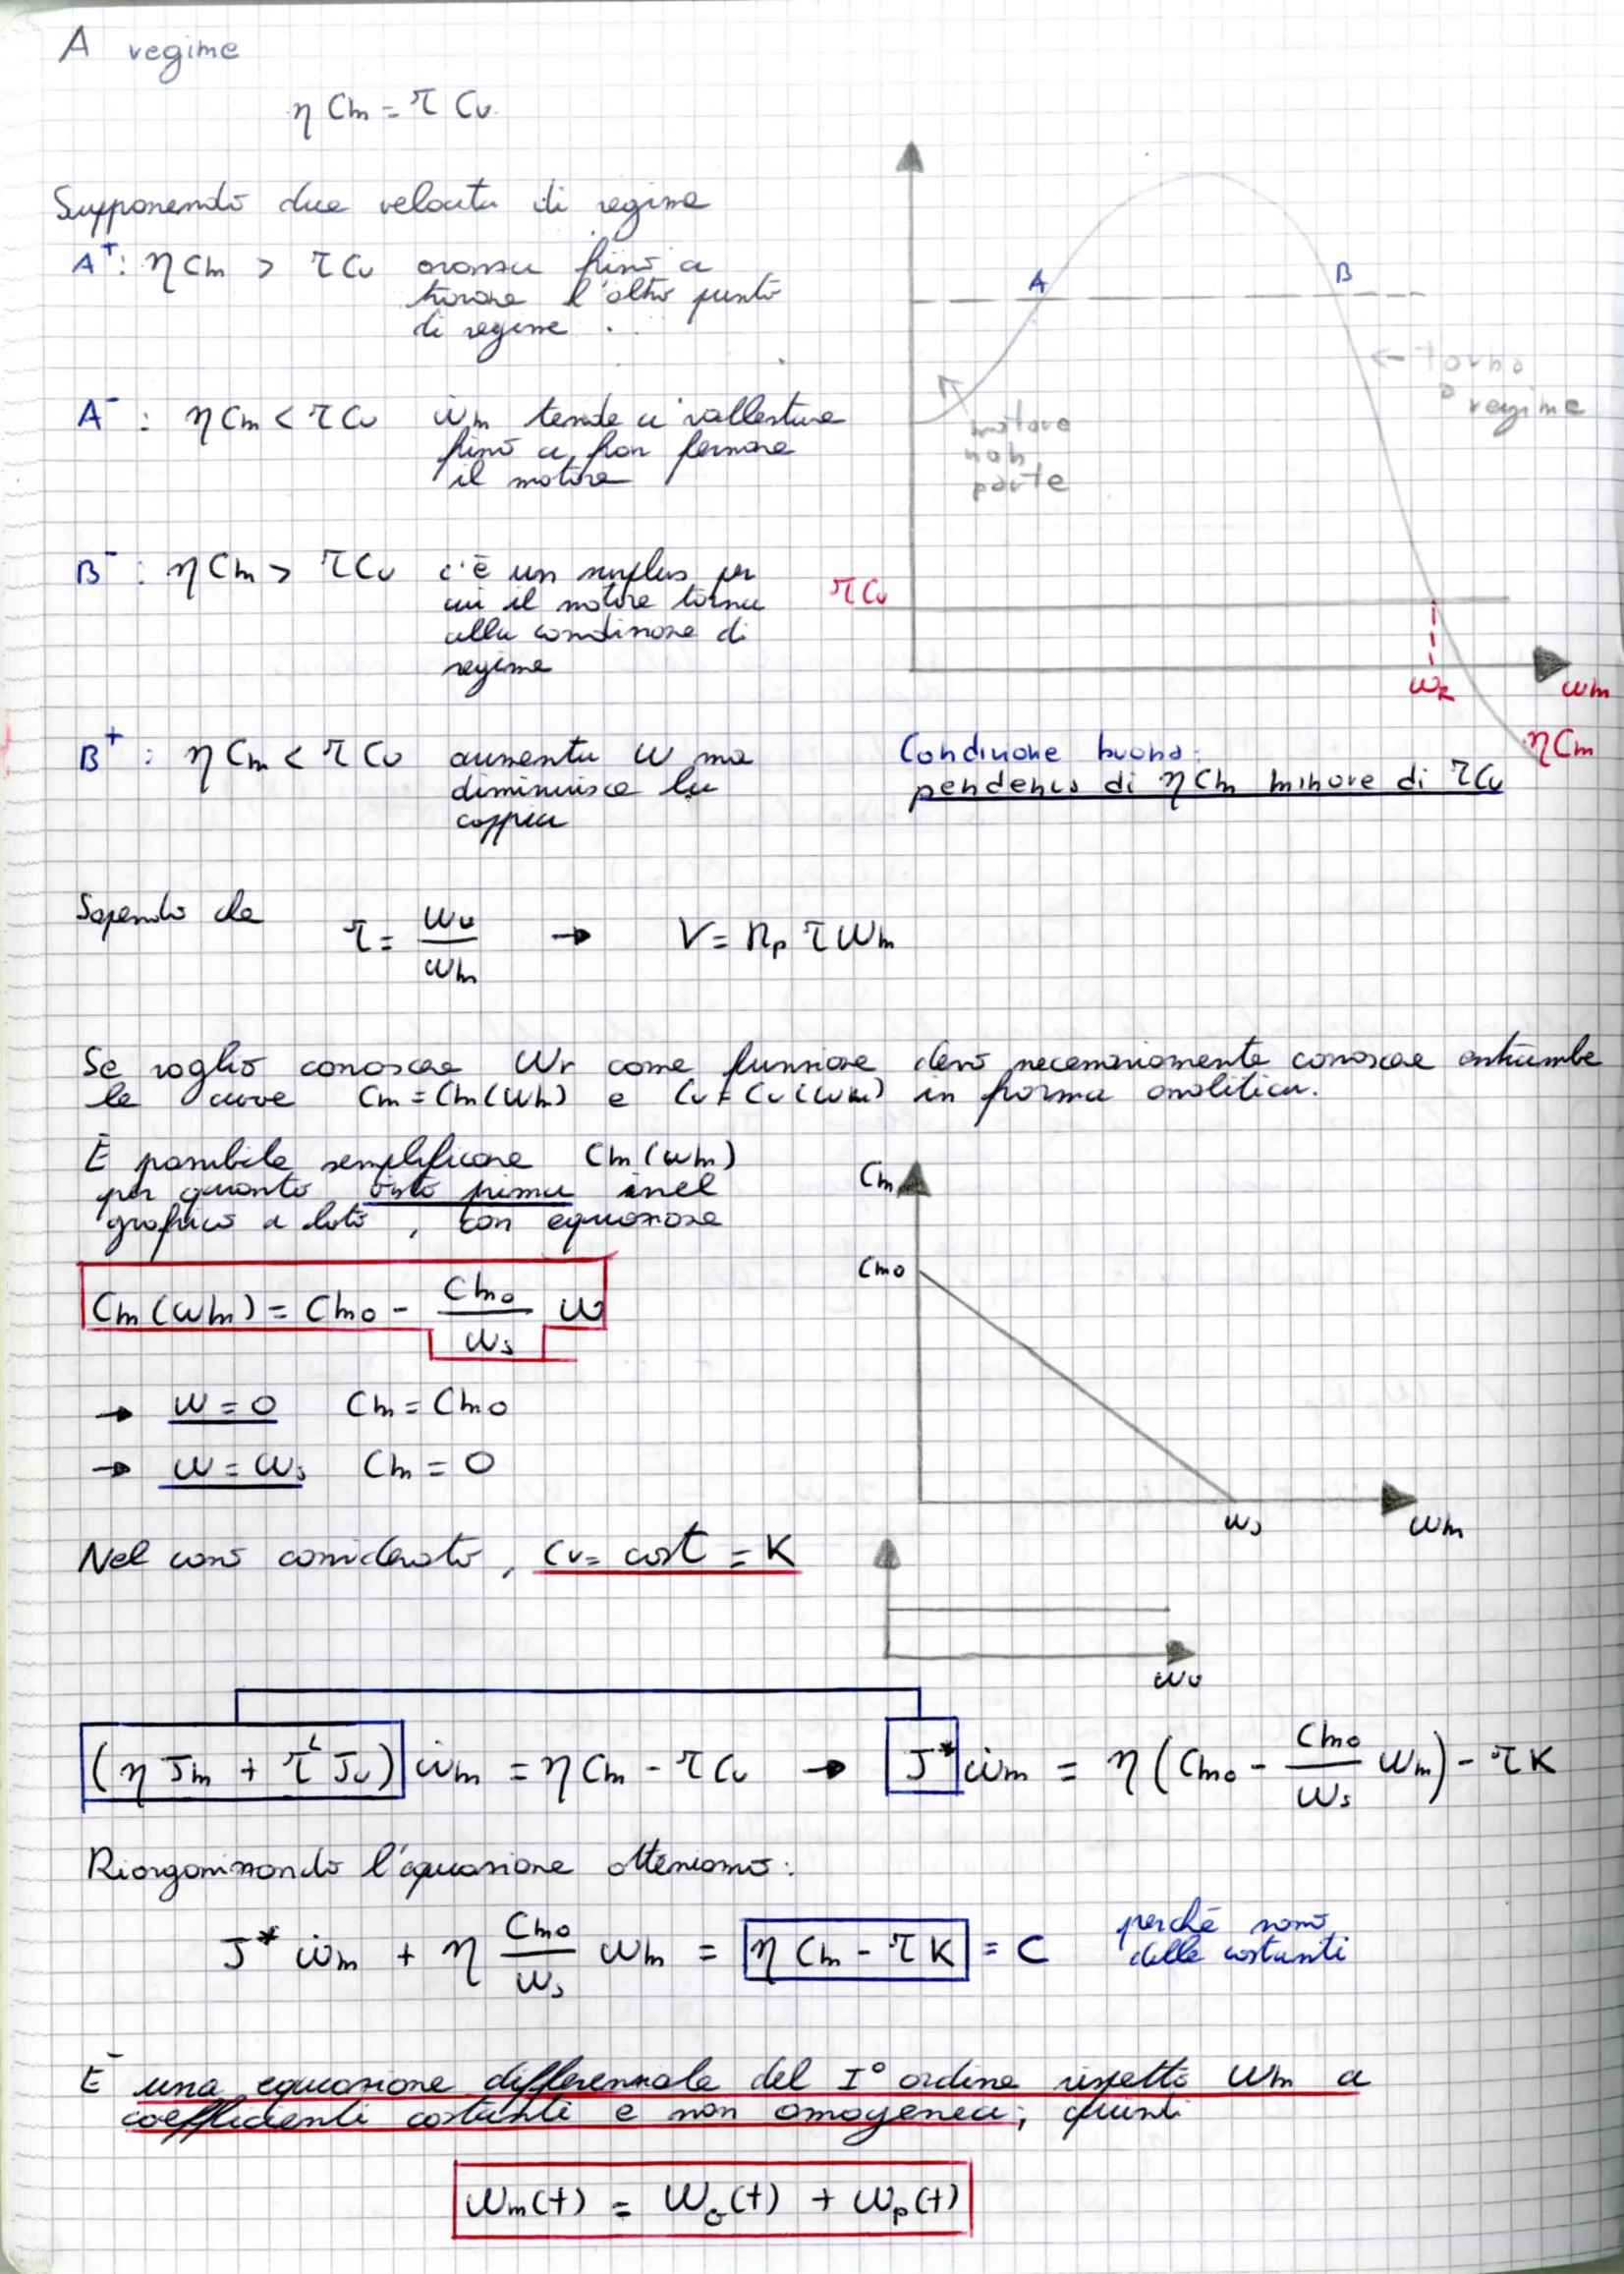 A regime
η Cm = τ Cu
Supponendo due velocità di regime
A⁺: η Cm > τ Cu avanza fino a
trovare l'altro punto
di regime.
A⁻: η Cm < τ Cu ωm tende a rallentare
fino a far fermare
il motore
B⁻: η Cm > τ Cu c'è un surplus per
cui il motore torna
alla condizione di
regime
B⁺: η Cm < τ Cu aumenta ω ma
diminuisce la
coppia
A
B
← torno
a regime
motore
non
parte
τ Cu
ωR
ωm
η Cm
Condizione buona:
pendenza di η Cm minore di τ Cu
Sapendo che τ = ωu / ωm → V = Rp τ ωm
Se voglio conoscere ωr come funzione devo necessariamente conoscere entrambe
le curve Cm = Cm(ωm) e Cu = Cu(ωu) in forma analitica.
È possibile semplificare Cm(ωm)
per quanto visto prima nel
grafico a lato, con equazione
Cm(ωm) = Cmo - Cmo / ωs ω
→ ω = 0 Cm = Cmo
→ ω = ωs Cm = 0
Cm
Cmo
ωs
ωm
Nel caso considerato, Cu = cost = K
ωu
(η Jm + τ² Ju) ω̇m = η Cm - τ Cu → J* ω̇m = η (Cmo - Cmo / ωs ωm) - τ K
Riorganizzando l'equazione otteniamo:
J* ω̇m + η Cmo / ωs ωm = η Cm - τ K = C perché sono
delle costanti
È una equazione differenziale del I° ordine rispetto ωm a
coefficienti costanti e non omogenea; quindi
ωm(t) = ωG(t) + ωp(t)